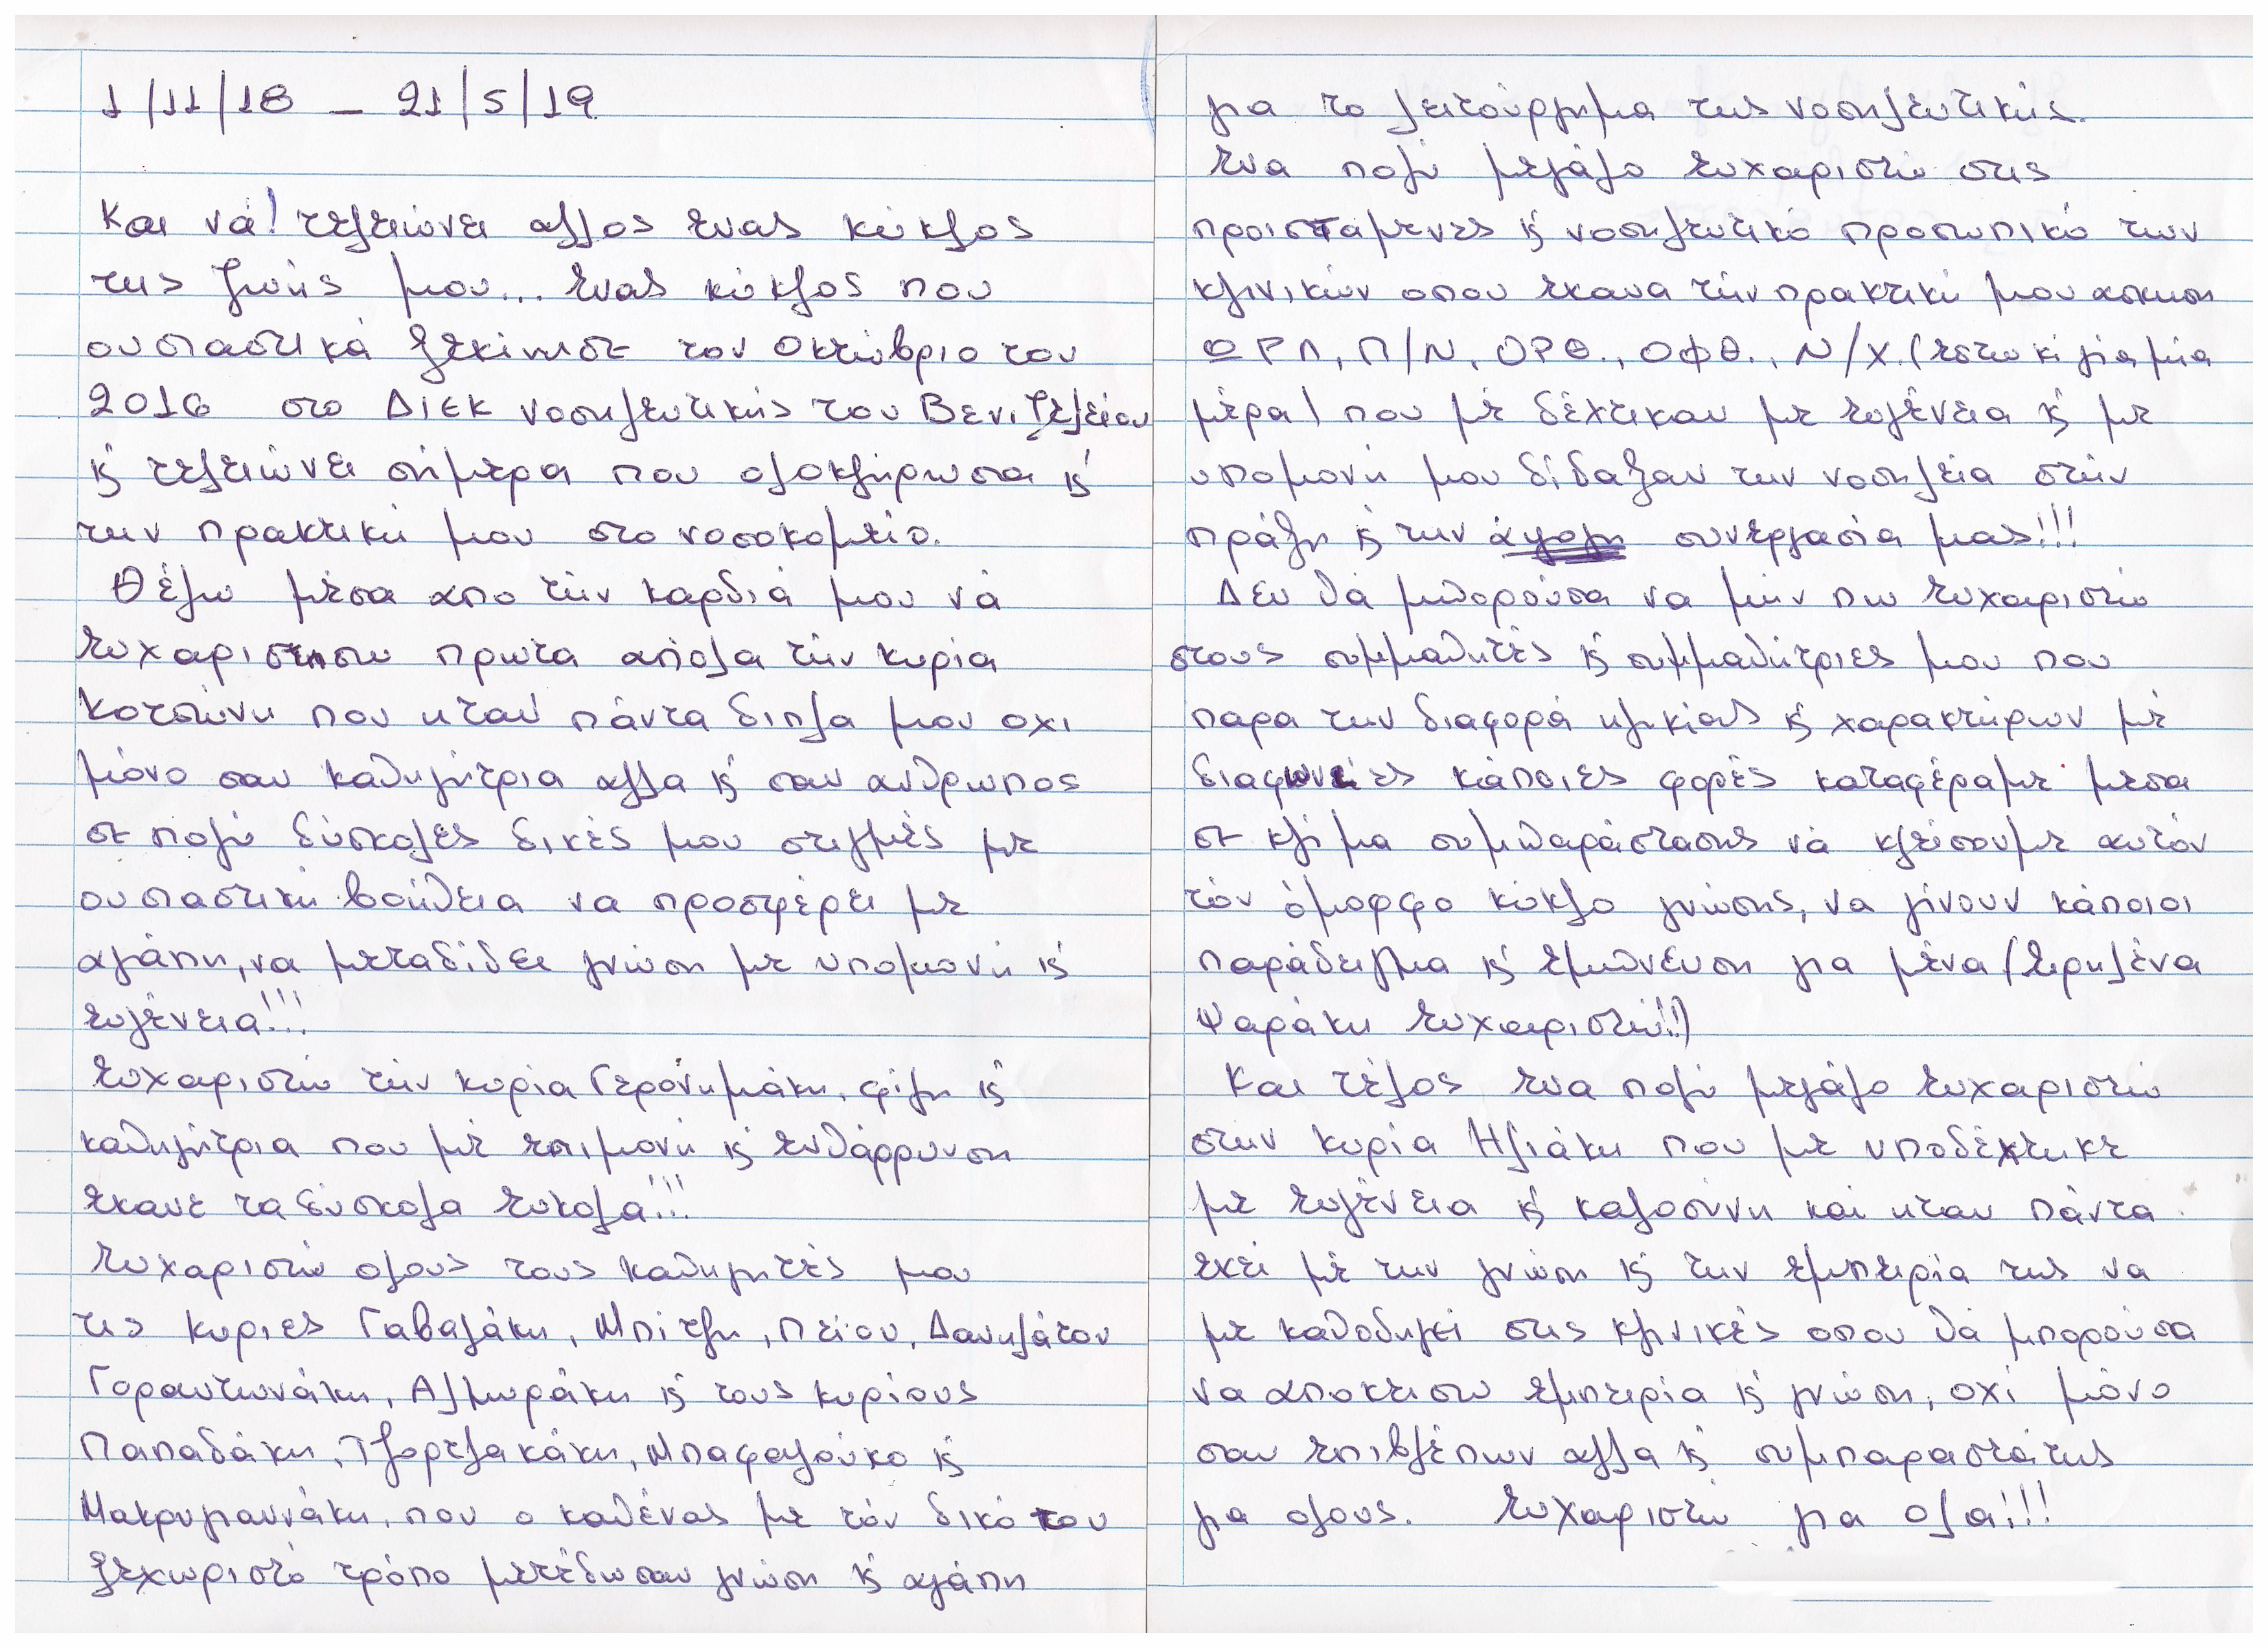 1/11/18 – 21/5/19
Και νά! τελειώνει αλλος ενας κύκλος
της ζωής μου... ενας κύκλος που
ουσιαστικά ξεκίνησε τον Οκτώβριο του
2016 στο ΔΙΕΚ νοσηλευτικής του Βενιζελείου
κ' τελειώνει σήμερα που ολοκλήρωσα κ'
την πρακτική μου στο νοσοκομείο.
Θέλω μέσα απο τήν καρδιά μου νά
ευχαριστησω πρωτα απόλα τήν κυρία
Κοτσώνη που ηταν πάντα διπλα μου οχι
μόνο σαν καθηγήτρια αλλα κ' σαν ανθρωπος
σε πολύ δύσκολες δικές μου στιγμές με
ουσιαστική βοήθεια να προσφέρει με
αγάπη, να μεταδίδει γνώση με υπομονή κ'
ευγένεια!!!
Ευχαριστώ τήν κυρία Γερόνυμάκη, φίλη κ'
καθηγήτρια που μέ επιμονή κ' ενθάρρυνση
εκανε τα δύσκολα ευκολα!!!
Ευχαριστώ ολους τους καθηγητές μου
τις κυριες Γαβαλάκη, Μπίτζη, Πείου, Δανηλάτου
Γοραντωνάκη, Αλμυράκη κ' τους κυρίους
Παπαδάκη, Τζορτζακάκη, Μπαφαλούκο κ'
Μακρυγιαννάκη, που ο καθένας με τόν δικό του
ξεχωριστό τρόπο μετέδωσαν γνώση κ' αγάπη
για το λειτούργημα της νοσηλευτικής.
Ενα πολύ μεγάλο ευχαριστώ στις
προισταμενες κ' νοσηλευτικό προσωπικό των
κλινικών οπου εκανα τήν πρακτική μου ασκηση
ΩΡΛ, Π/Ν, ΟΡΘ., ΟΦΘ., Ν/Χ. (εστω κι για μία
μέρα) που μέ δέχτικαν με ευγένεια κ' με
υπομονή μου δίδαξαν την νοσηλεία στήν
πράξη κ' την άψογη συνεργασία μας!!!
Δεν θά μπορούσα να μήν πω ευχαριστώ
στους συμμαθητές κ' συμμαθήτριες μου που
παρα την διαφορά ηλικίας κ' χαρακτήρων μέ
διαφωνίες κάποιες φορές καταφέραμε μεσα
σε κλίμα συμπαράστασης νά κλείσουμε αυτόν
τόν όμορφο κύκλο γνώσης, να γίνουν κάποιοι
παράδειγμα κ' εμπνευση για μένα (Ειρηλένα
Ψαράκη ευχαριστώ!!)
Και τέλος ενα πολύ μεγάλο ευχαριστώ
στην κυρία Ηλιάκη που με υποδέχτηκε
με ευγένεια κ' καλοσύνη καί ηταν πάντα
εκεί μέ την γνώση κ' την εμπειρία της να
με καθοδηγεί στις κλινικές οπου θά μπορούσα
να αποκτισω εμπειρία κ' γνώση, οχί μόνο
σαν επιβλέπων αλλα κ' συμπαραστάτης
για ολους. Ευχαριστώ για ολα!!!